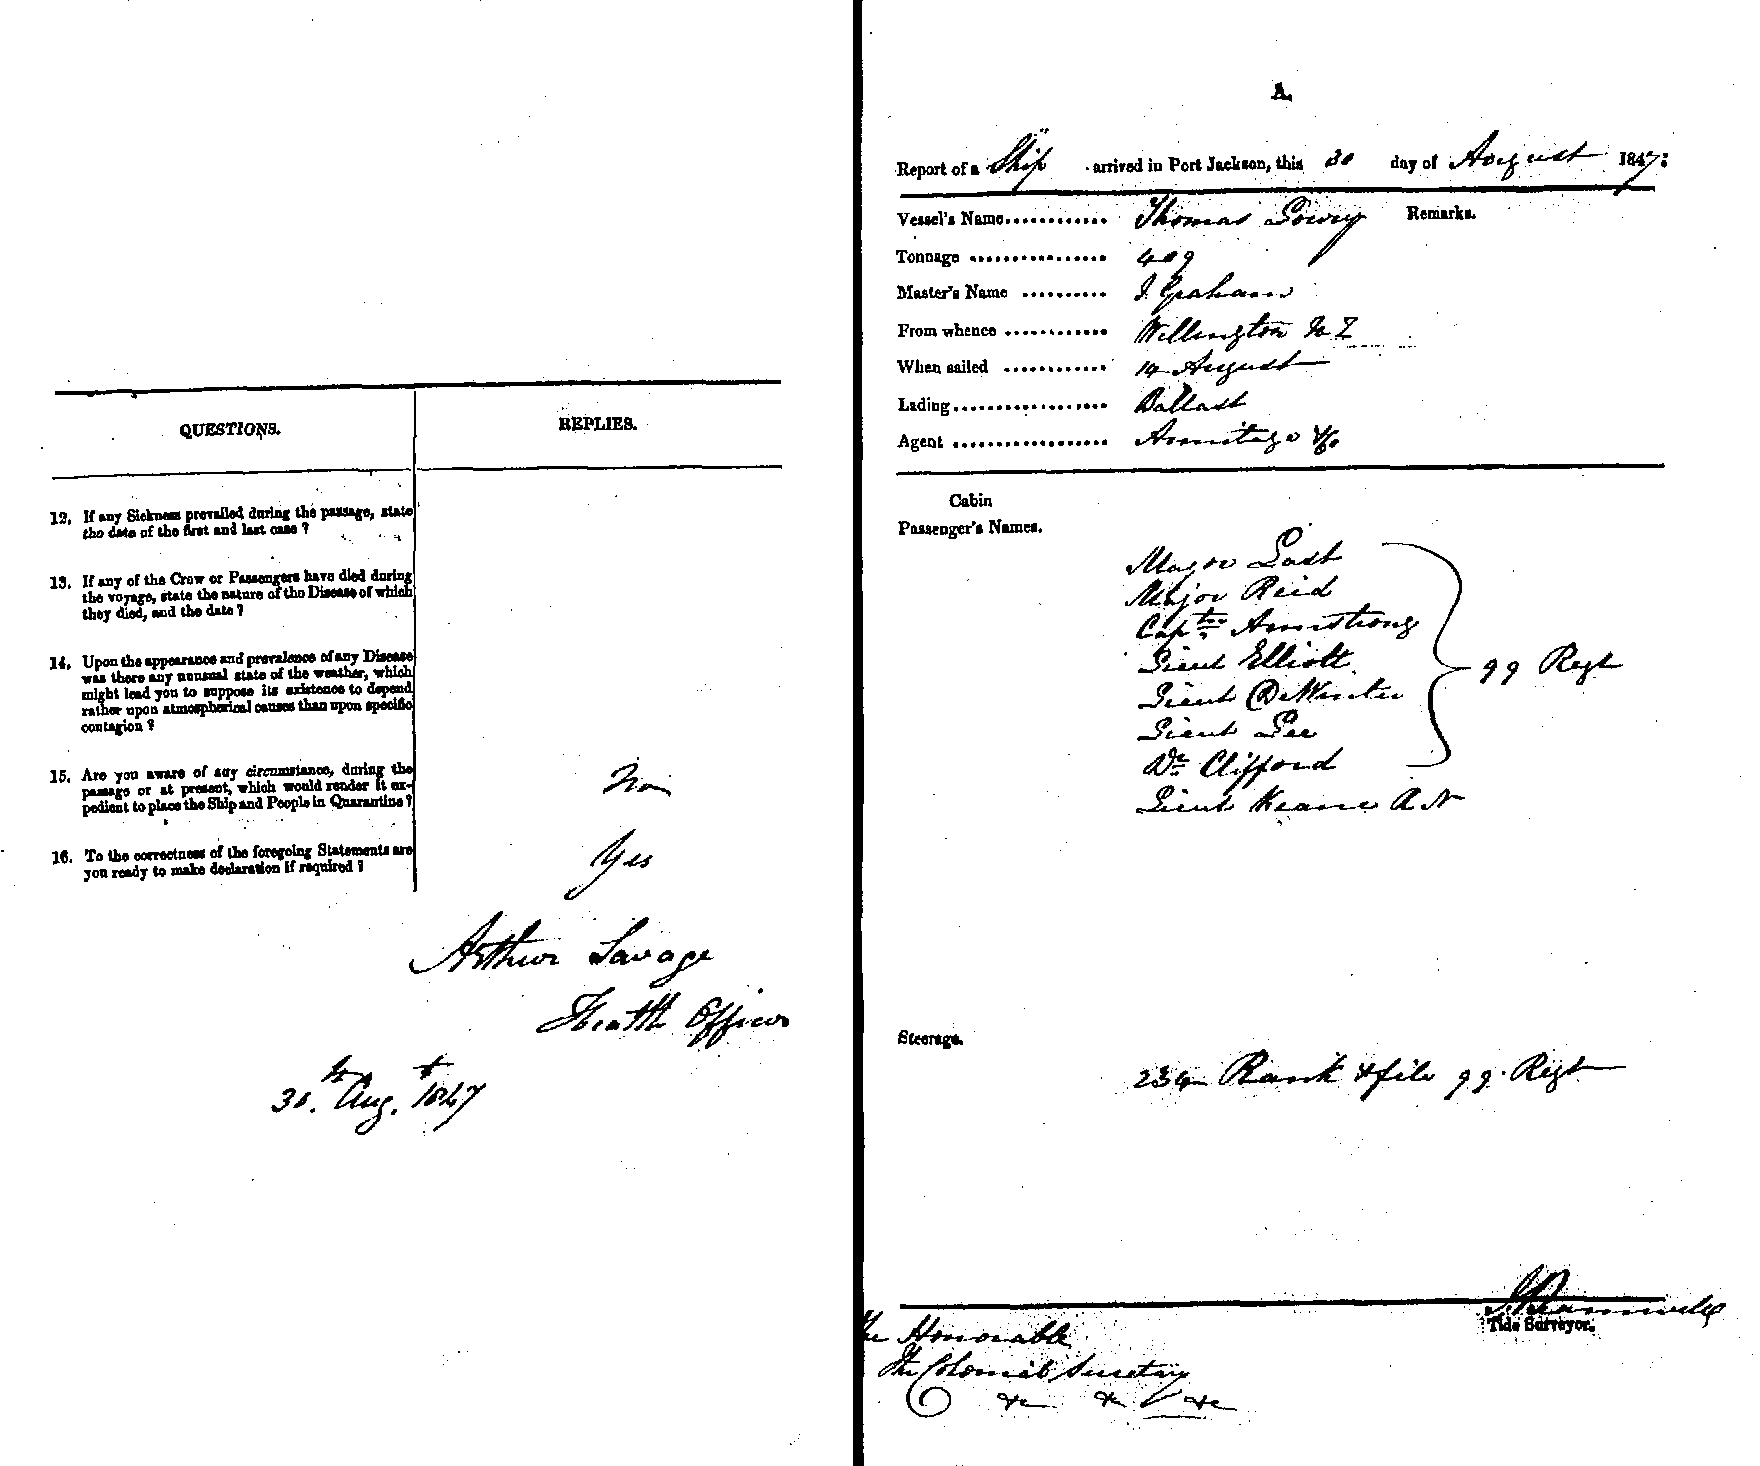 QUESTIONS.
REPLIES.
12. If any Sickness prevailed during the passage, state
the date of the first and last case ?
13. If any of the Crew or Passengers have died during
the voyage, state the nature of the Disease of which
they died, and the date ?
14. Upon the appearance and prevalence of any Disease
was there any unusual state of the weather, which
might lead you to suppose its existence to depend
rather upon atmospherical causes than upon specific
contagion ?
15. Are you aware of any circumstance, during the
passage or at present, which would render it ex-
pedient to place the Ship and People in Quarantine ?
No
16. To the correctness of the foregoing Statements are
you ready to make declaration if required ?
Yes
Arthur Savage
Health Officer
30. Aug. 1847
A.
Report of a Ship arrived in Port Jackson, this 30 day of August 1847:
Vessel's Name............ Thomas Lowry Remarks.
Tonnage ................ 409
Master's Name .......... J. Graham
From whence ............ Wellington N Z
When sailed ............ 14 August
Lading.................. Ballast
Agent .................. Armitage & Co
Cabin
Passenger's Names.
Major Last
Major Reid
Captn Armstrong
Lieut Elliott
99 Regt
Lieut DeWinter
Lieut Lee
Dr Clifford
Lieut Keane R N
Steerage.
234 Rank & file 99. Regt
Tide Surveyor.
The Honorable
The Colonial Secretary
&c &c &c